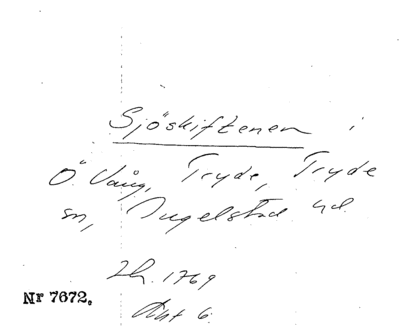 Sjöskiftenen i
Ö. Vång, Tryde, Tryde
sn, Ingelstad hd.
Lh. 1769
Akt 6.
Nr 7672.